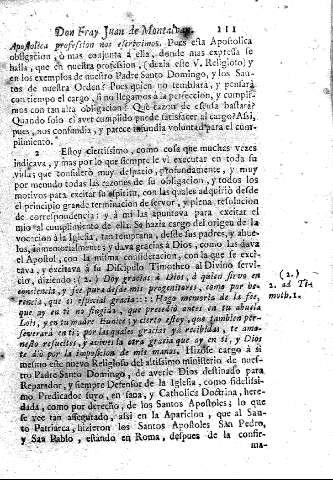 Don Fray Juan de Montalvan. 111
Apostolica profession nos escrivimos. Pues esta Apostolica
obligacion, ò mas conjunta à ella, donde mas expressa se
halla, que en nuestra profession, (dezia este V. Religioso) y
en los exemplos de nuestro Padre Santo Domingo, y los San-
tos de nuestra Orden? Pues quien no temblarà, y pensarà
con tiempo el cargo, si no llegamos à la perfeccion, y cumpli-
mos con tan alta obligacion? Què razon de escusa bastarà?
Quando solo el aver cumplido puede satisfacer al cargo? Assi,
pues, nos confundia, y parece infundia voluntad para el cum-
plimiento.
2 Estoy ciertissimo, como cosa que muchas vezes
indicava, y mas por lo que siempre le vì executar en toda su
vida; que considerò muy despacio, profundamente, y muy
por menudo todas las razones de su obligacion, y todos los
motivos para excitar su espiritu, con las quales adquiriò desde
el principio grande terminacion de fervor, y plena resolucion
de correspondencia; y à mi las apuntava para excitar el
mio al cumplimiento de ella. Se hazia cargo del origen de la
vocacion à la Iglesia, tan temprana, desde sus padres, y abue-
los, immemorialmente; y dava gracias à Dios, como las dava
el Apostol, con la misma consideracion, con la que se exci-
tava, y excitava à su Discipulo Timotheo al Divino servi-
cio, diziendo: (2.) Doy gracias à Dios, à quien sirvo en
conciencia, y fee pura desde mis progenitores, como por he-
rencia, que es especial gracia::: Hago memoria de la fee,
que ay en ti no fingida, que precediò antes en tu abuela
Lois, y en tu madre Eunice; y cierto estoy, que tambien per-
severarà en ti; por las quales gracias yà recibidas, te amo-
nesto resucites, y avives la otra gracia que ay en ti, y Dios
te diò por la imposicion de mis manos. Hizose cargo à si
mesmo este nuevo Religioso del altissimo ministerio de nues-
tro Padre Santo Domingo, de averle Dios destinado para
Reparador, y siempre Defensor de la Iglesia, como fidelissi-
mo Predicador suyo, en sana, y Catholica Doctrina, here-
dada, como por derecho, de los Santos Apostoles; lo que
se vee tan assegurado, assi en la Aparicion, que al San-
to Patriarca, hizieron los Santos Apostoles San Pedro,
y San Pablo, estando en Roma, despues de la confir-
ma-
(2.)
2. ad Ti-
moth. 1.